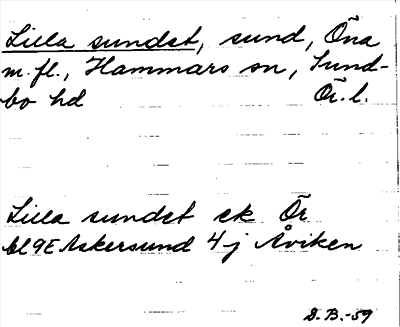 Lilla sundet, sund, Öna
m.fl., Hammars sn, Sund-
bo hd Ör. l.
Lilla sundet ek Ör
bl 9E Askersund 4 j Åviken
D. B.-59